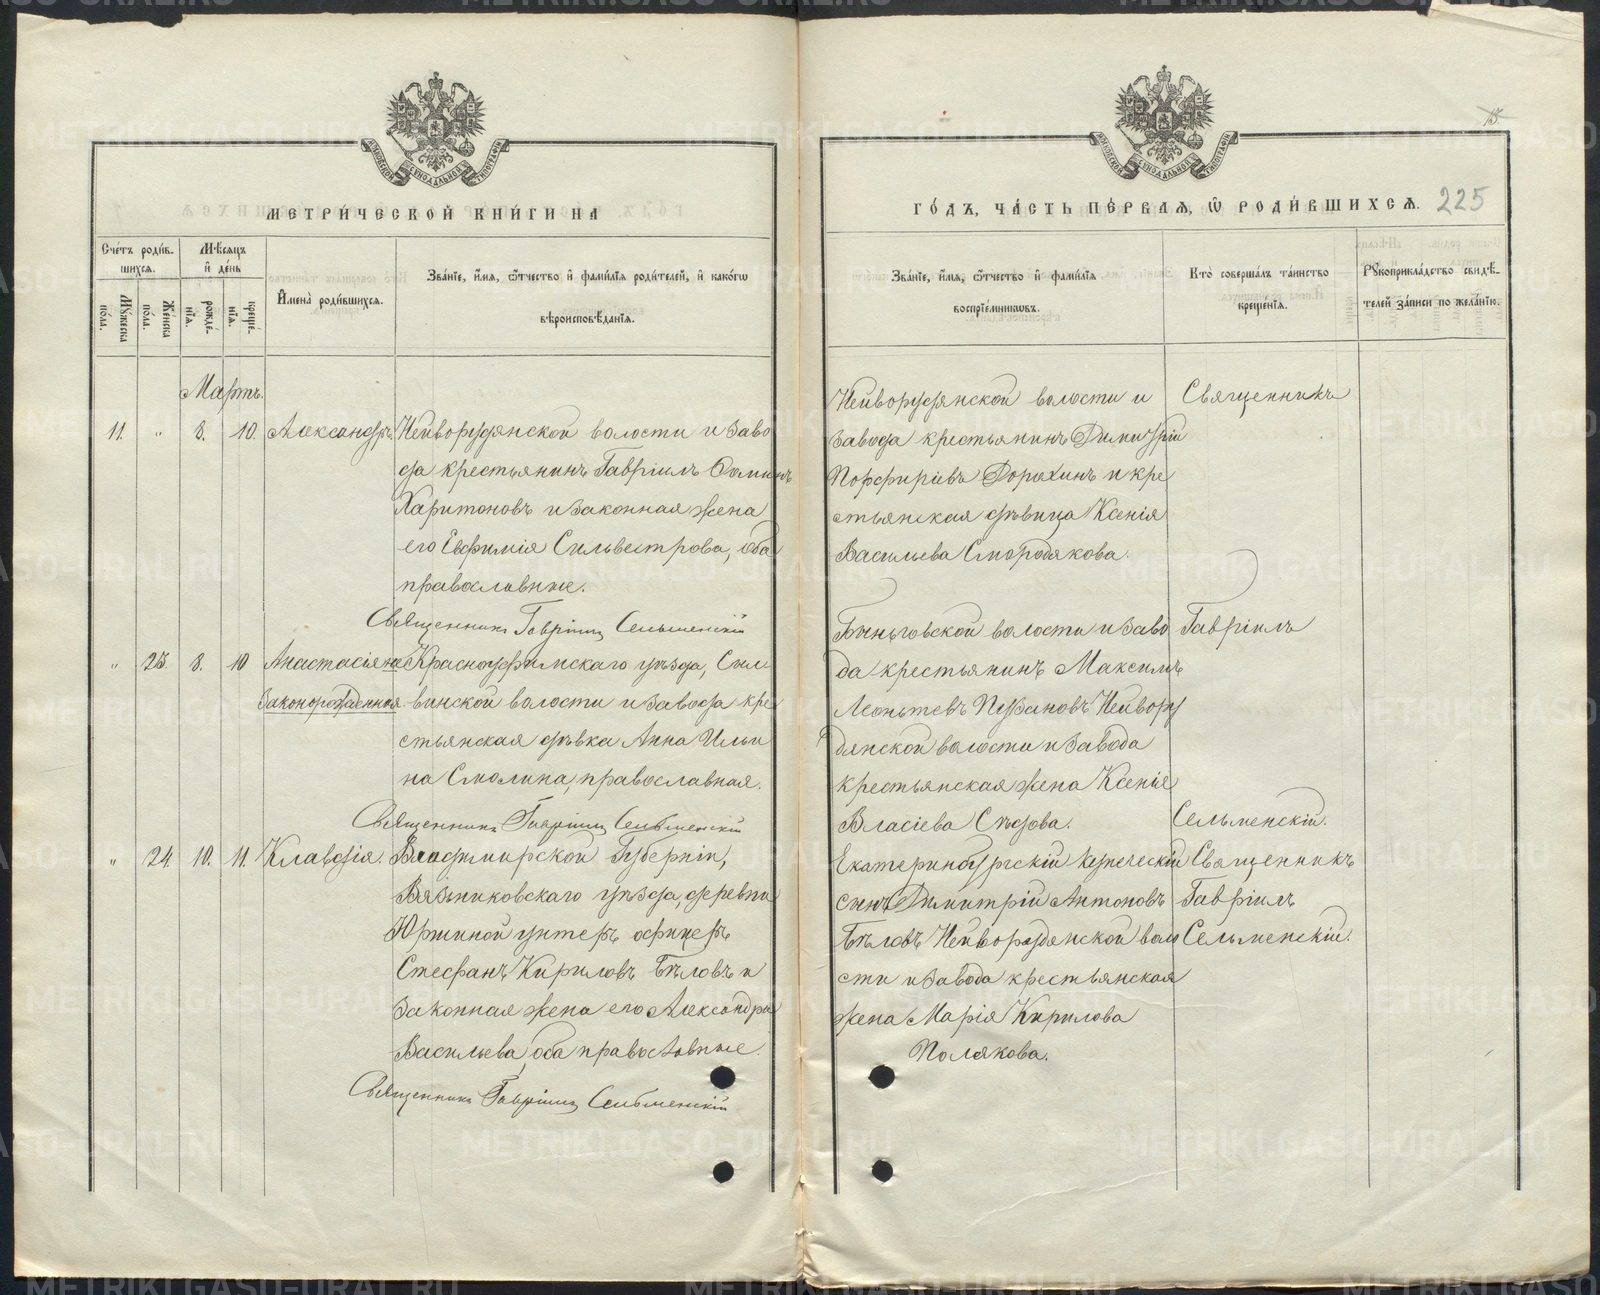 МЕТРИ́ЧЕСКОЙ КНИ́ГИ НА
Сче́тъ роди́в-
шихсѧ.
Мѣ́сѧцъ
и҆ де́нь
Мꙋ́жеска
пола.
Же́нска
пола.
рожде́-
нїѧ.
креще́-
нїѧ.
И҆мена̀ роди́вшихсѧ.
Зва́нїе, и҆́мѧ, ѻ҆́тчество и҆ фами́лїѧ роди́телей, и҆ како́гѡ
вѣроисповѣ́данїѧ.
Мартъ.
11. " 8. 10. Александръ Нейворудянской волости и заво
да крестьянинъ Гавріилъ Ѳоминъ
Харитоновъ и законная жена
его Евфимія Сильвестрова, оба
православные.
Священникъ Гавріилъ Сельменскій
" 23. 8. 10 Анастасія не Красноуфимскаго уѣзда, Сыл
законорожденная винской волости и завода кре
стьянская дѣвка Анна Ильи
на Смолина, православная.
Священникъ Гавріилъ Сельменскій
" 24 10. 11. Клавдія. Владимирской Губерніи,
Вязниковскаго уѣзда, деревни
Юршиной унтеръ офицеръ
Стефанъ Кириловъ Бѣловъ и
законная жена его Александра
Васильева, оба православные.
Священникъ Гавріилъ Сельменскій
ГО́ДЪ, ЧА́СТЬ ПЕ́РВАѦ, Ѡ҆ РОДИ́ВШИХСѦ. 225
Зва́нїе, и҆́мѧ, ѻ҆́тчество и҆ фами́лїѧ
воспрїе́мникѡвъ.
Кто̀ соверша́лъ та́инство
креще́нїѧ.
Рꙋкоприкла́дство свидѣ́-
телей за́писи по жела́нїю.
Нейворудянской волости и
завода крестьянинъ Димитрій
Порфиріевъ Дорохинъ и кре
стьянская дѣвица Ксенія
Васильева Смородякова.
Священникъ
Быньговской волости и заво
да крестьянинъ Максимъ
Леонтьевъ Пузановъ Нейвору
дянской волости и завода
крестьянская жена Ксенія
Власіева Сѣдова.
Гавріилъ
Сельменскій.
Екатеринбургскій купеческій
сынъ Димитрій Антоновъ
Бѣловъ Нейворудянской воло
сти и завода крестьянская
жена Марія Кирилова
Полякова.
Священникъ
Гавріилъ
Сельменскій.
METRIKI.GASO-URAL.RU